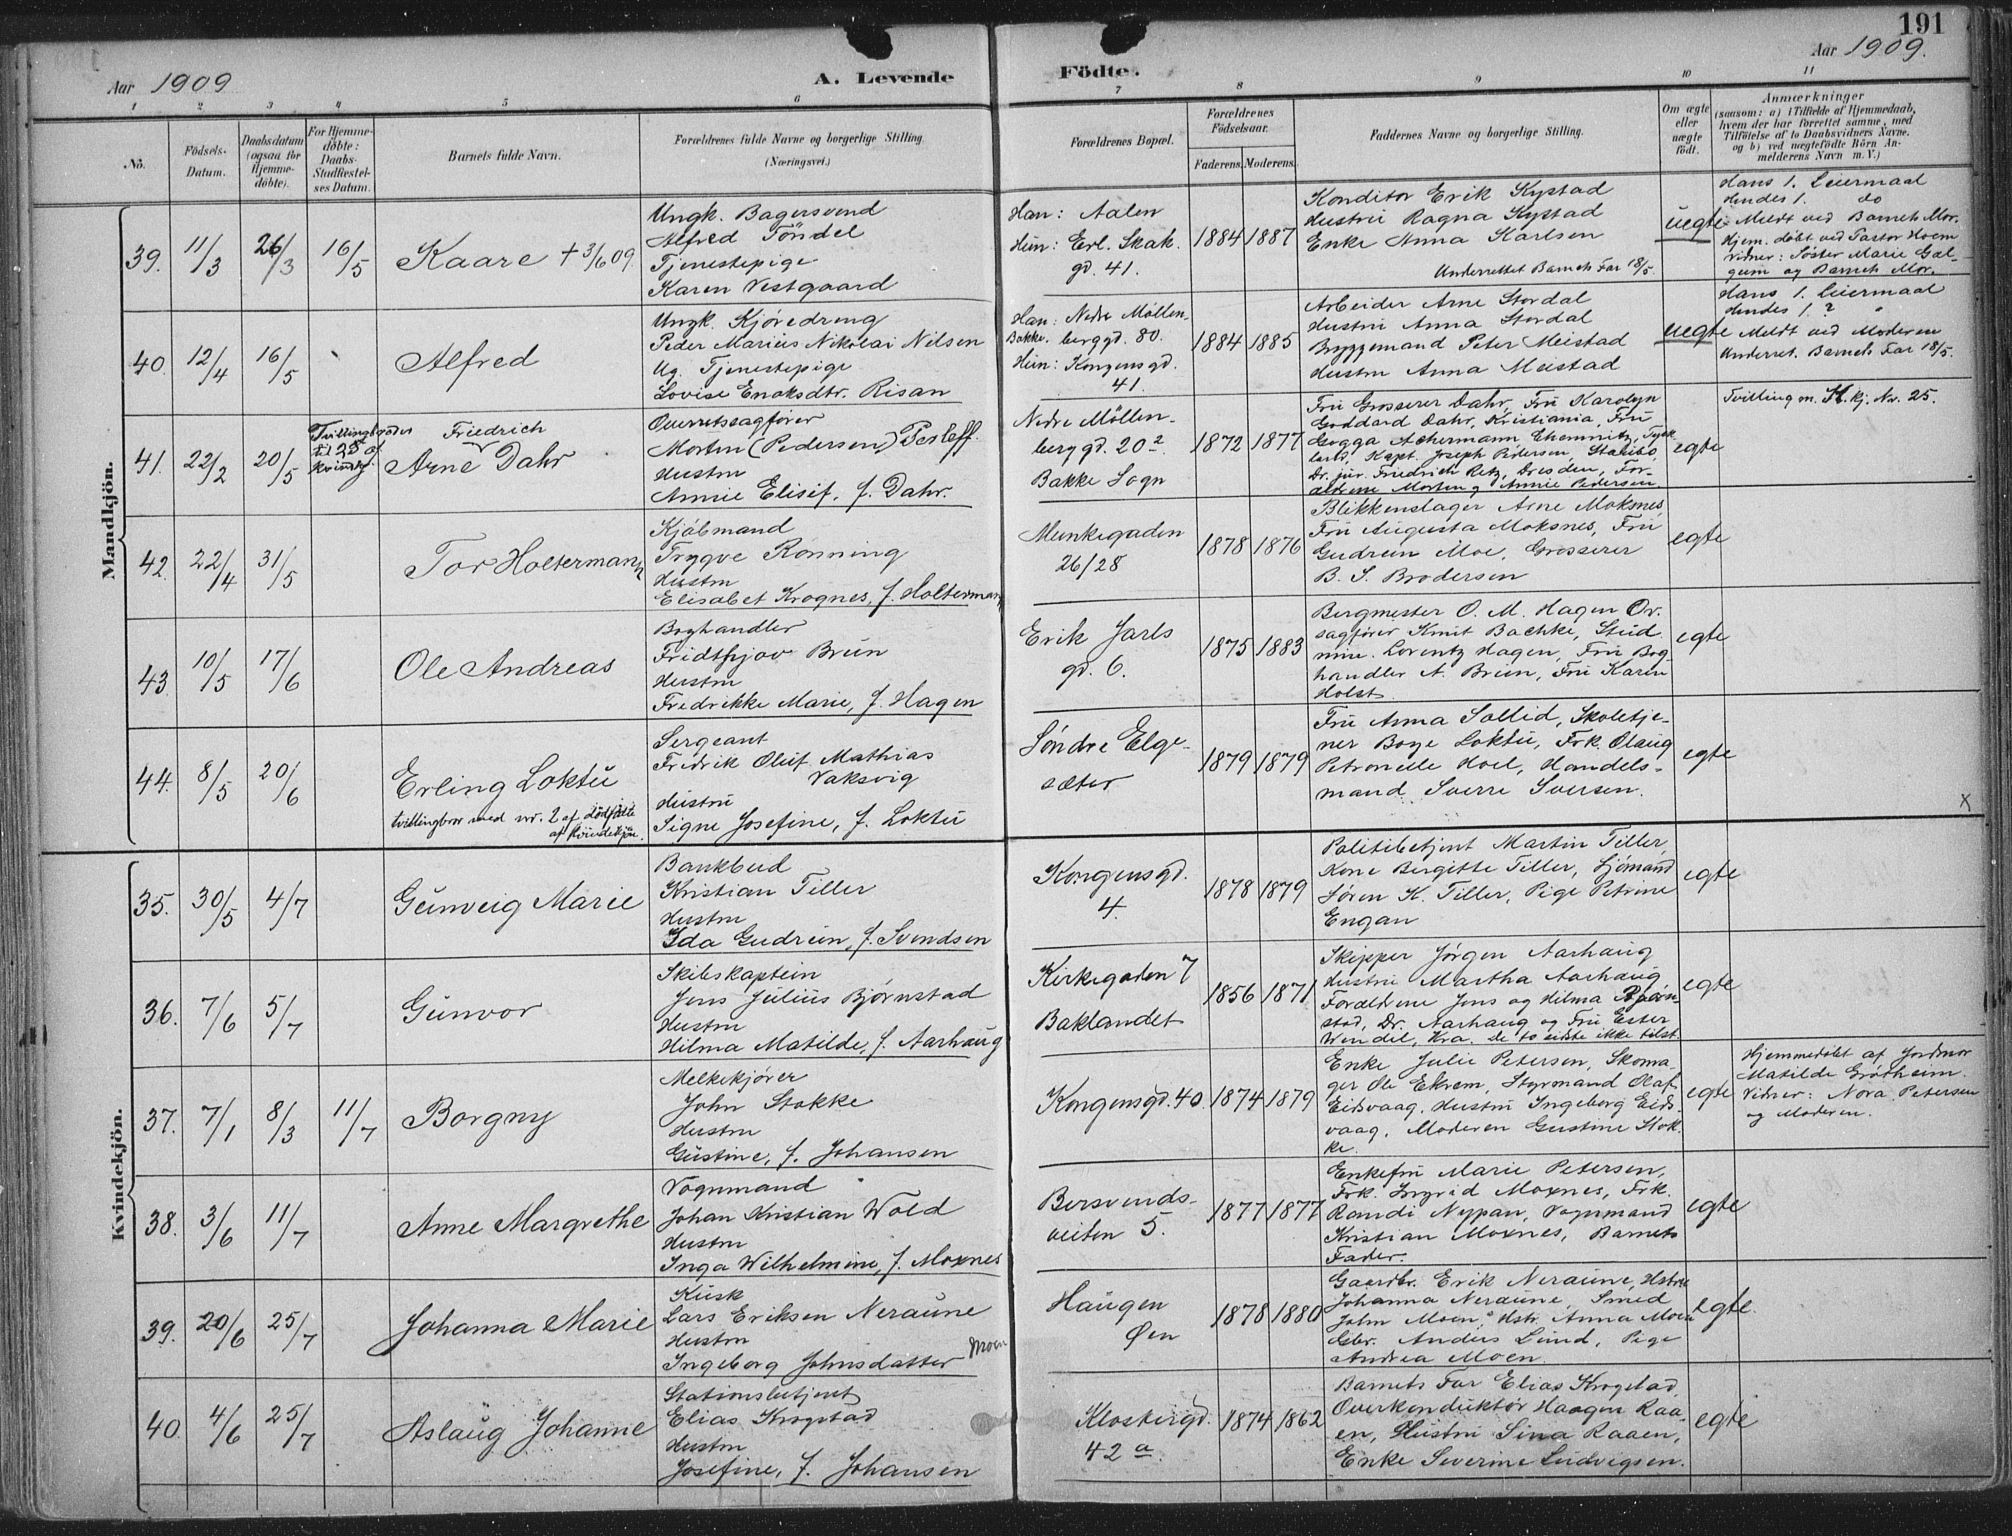 191
Aar 1909
A. Levende
Födte.
Aar 1909.
1 2 3 4 5 6 7 8 9 10 11
No.
Födsels-
Datum.
Daabsdatum
(ogsaa for
Hjemme-
døbte).
For Hjemme-
døbte:
Daabs-
Stadfæstel-
ses Datum.
Barnets fulde Navn.
Forældrenes fulde Navne og borgerlige Stilling.
(Næringsvei.)
Forældrenes Bopæl.
Forældrenes
Födselsaar.
Faderens. Moderens.
Faddernes Navne og borgerlige Stilling.
Om ægte
eller
uægte
födt.
Anmærkninger
(saasom: a) i Tilfælde af Hjemmedaab,
hvem der har forrettet samme, med
Tilföielse af to Daabsvidners Navne.
og b) ved uægtefödte Börn An-
melderens Navn m. V.)
Mandkjön.
39. 11/3 26/3 16/5
Kaare + 3/6 09.
Ungk. Bagersvend
Alfred Töndel
Tjenestepige
Karen Vestgaard
Han: Aalen
Hun: Erl. Skak.
gd. 41.
1884 1887
Konditor Erik Kystad
Hustru Ragna Kystad
Enke Anna Karlsen
Underrettet Barnets Far 18/5.
uegte
Hans 1. Leiermaal
Hendes 1. do
Meldt ved Barnets Mor.
Hjem. döbt ved Pastor Hoem
Vidner: Söster Marie Gal-
gum og Barnets Mor.
40. 12/4 16/5
Alfred
Ungk. Kjøredreng
Peder Marius Nikolai Nilsen
Ug. Tjenestepige
Lovise Enoksdtr. Risan
Han: Nedre Möllen-
Bakke. berggd. 80.
Hun: Kongensgd.
41.
1884 1885
Arbeider Arne Stordal
Hustru Anna Stordal
Bryggemand Peter Meistad
Hustru Anna Meistad
uegte
Hans 1. Leiermaal
Hendes 1. ? "
Meldt ved Moderen
Underret. Barnets Far 18/5.
41. 22/2 20/5
Tvillingbroder
til 25 af
kvindkj.
Friedrich
Arne Dahr
Overretssagfører
Morten (Pedersen) Pesleff.
Hustru
Annie Elisif, f. Dahr.
Nedre Möllen-
berggd. 20².
Bakke Sogn
1872 1877
Fru Grosserer Dahr, Fru Karolyn
Goddard Dahr, Kristiania, Fru
Gogga Achermann Chemnitz, Tysk
land, Kapt. Joseph Pedersen, Stenkibo,
Dr. jur. Friedrich Retz, Dresden, For-
ældrene Morten og Annie Pedersen
egte
Tvilling m. K.kj. No. 25.
42. 22/4 31/5
Tor Holtermann
Kjöbmand
Trygve Rønning
Hustru
Elisabet Krognes, f. Holtermann
Munkegaden
26/28
1878 1876
Blikkenslager Arne Moksnes
Fru Augusta Moksnes, Fru
Gudrun Moe, Grosserer
B. S. Brodersen
egte
43. 10/5 17/6
Ole Andreas
Boghandler
Fridthjov Brun
Hustru
Fredrikke Marie, f. Hagen
Erik Jarls
gd. 6.
1875 1883
Bergmester O. M. Hagen Ovr.
sagfører Knut Bachke, Stud.
min. Lorentz Hagen, Fru Bog
handler A. Brun, Fru Karen
Holst.
egte
44. 8/5 20/6
Erling Loktu
tvillingbror med nr. 2 af dødfødte
af kvindekjøn.
Sergeant
Fredrik Oluf Mathias
Vaksvig
Hustru
Signe Josefine, f. Loktu
Söndre Elge-
sæter
1879 1879
Fru Anna Sollid, Skoletje-
ner Boye Loktu, Frk. Olaug
Petronelle Hoel, Handels-
mand Sverre Sversen.
egte
x
Kvindekjön.
35. 30/5 4/7
Gunveig Marie
Bankbud
Kristian Tiller
Hustru
Ida Gudrun, f. Svendsen
Kongensgd.
4.
1878 1879
Politibetjent Martin Tiller,
Kone Bergitte Tiller, Sjömand
Søren K. Tiller, Pige Petrine
Engan
egte
36. 7/6 5/7
Gunvor
Skibskaptein
Jens Julius Bjørnstad
Hustru
Hilma Matilde, f. Aarhaug
Kirkegaden 7
Baklandet
1856 1871
Skipper Jørgen Aarhaug
Hustru Martha Aarhaug
Forældrene Jens og Hilma Bjørn-
stad, Dr. Aarhaug og Fru Ester
Wendel, Kra. De to sidste ikke tilst.
egte
37. 7/1 8/3 11/7
Borgny
Melkekjører
John Stokke
Hustru
Gustine, f. Johansen
Kongensgd. 40
1874 1879
Enke Julie Petersen, Skoma-
ger Ole Ekrem, Styrmand Olaf
Eidsvaag, Hustru Ingeborg Eids-
vaag, Moderen Gustine Stok-
ke.
egte
Hjemmedöbt af Jordmor
Matilde Grötheim.
Vidner: Nora Petersen
og Moderen.
38. 3/6 11/7
Anne Margrethe
Vognmand
Johan Kristian Wold
Hustru
Inga Wilhelmine, f. Moxnes
Bersvends-
veiten 5.
1877 1877
Enkefru Marie Petersen,
Frk. Ingrid Moxnes, Frk.
Randi Nypan, Vognmand
Kristian Moxnes, Barnets
Fader.
egte
39. 20/6 25/7
Johanna Marie
Kusk
Lars Eriksen Neraune
Hustru
Ingeborg Johnsdatter Moen
Haugen
Øen
1878 1880
Gaardbr. Erik Neraune, Hstru
Johanna Neraune, Smed
John Moen, Hstr. Anna Moen
Gbr. Anders Lund, Pige
Andrea Moen.
egte.
40. 4/6 25/7
Aslaug Johanne
Stationsbetjent
Elias Krogstad
Hustru
Josefine, f. Johansen
Klostergd.
42 a.
1874 1862
Barnets Far Elias Krogstad,
Overkonduktör Haagen Raa-
en, Hustru Sina Raaen,
Enke Severine Ludvigsen.
egte